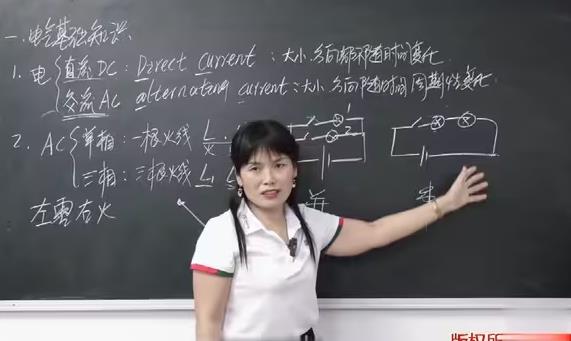 一. 电气基础知识:
1. 电 直流 DC: Direct current: 大小方向都不随时间变化
交流 AC alternating current: 大小, 方向随时间周期性变化
2. AC 单相: 一根火线 L
三相: 三根火线 L1
左零右火
并
串
版权所